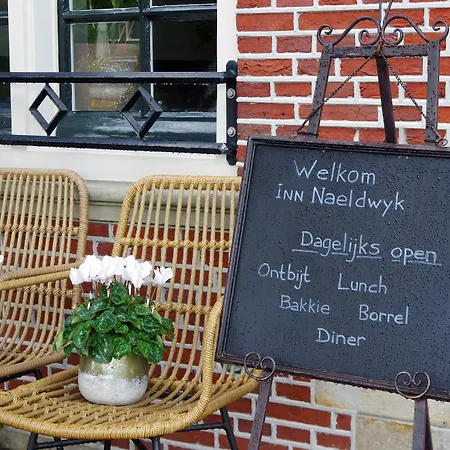 Welkom
INN Naeldwyk
Dagelijks open
Ontbijt Lunch
Bakkie Borrel
Diner